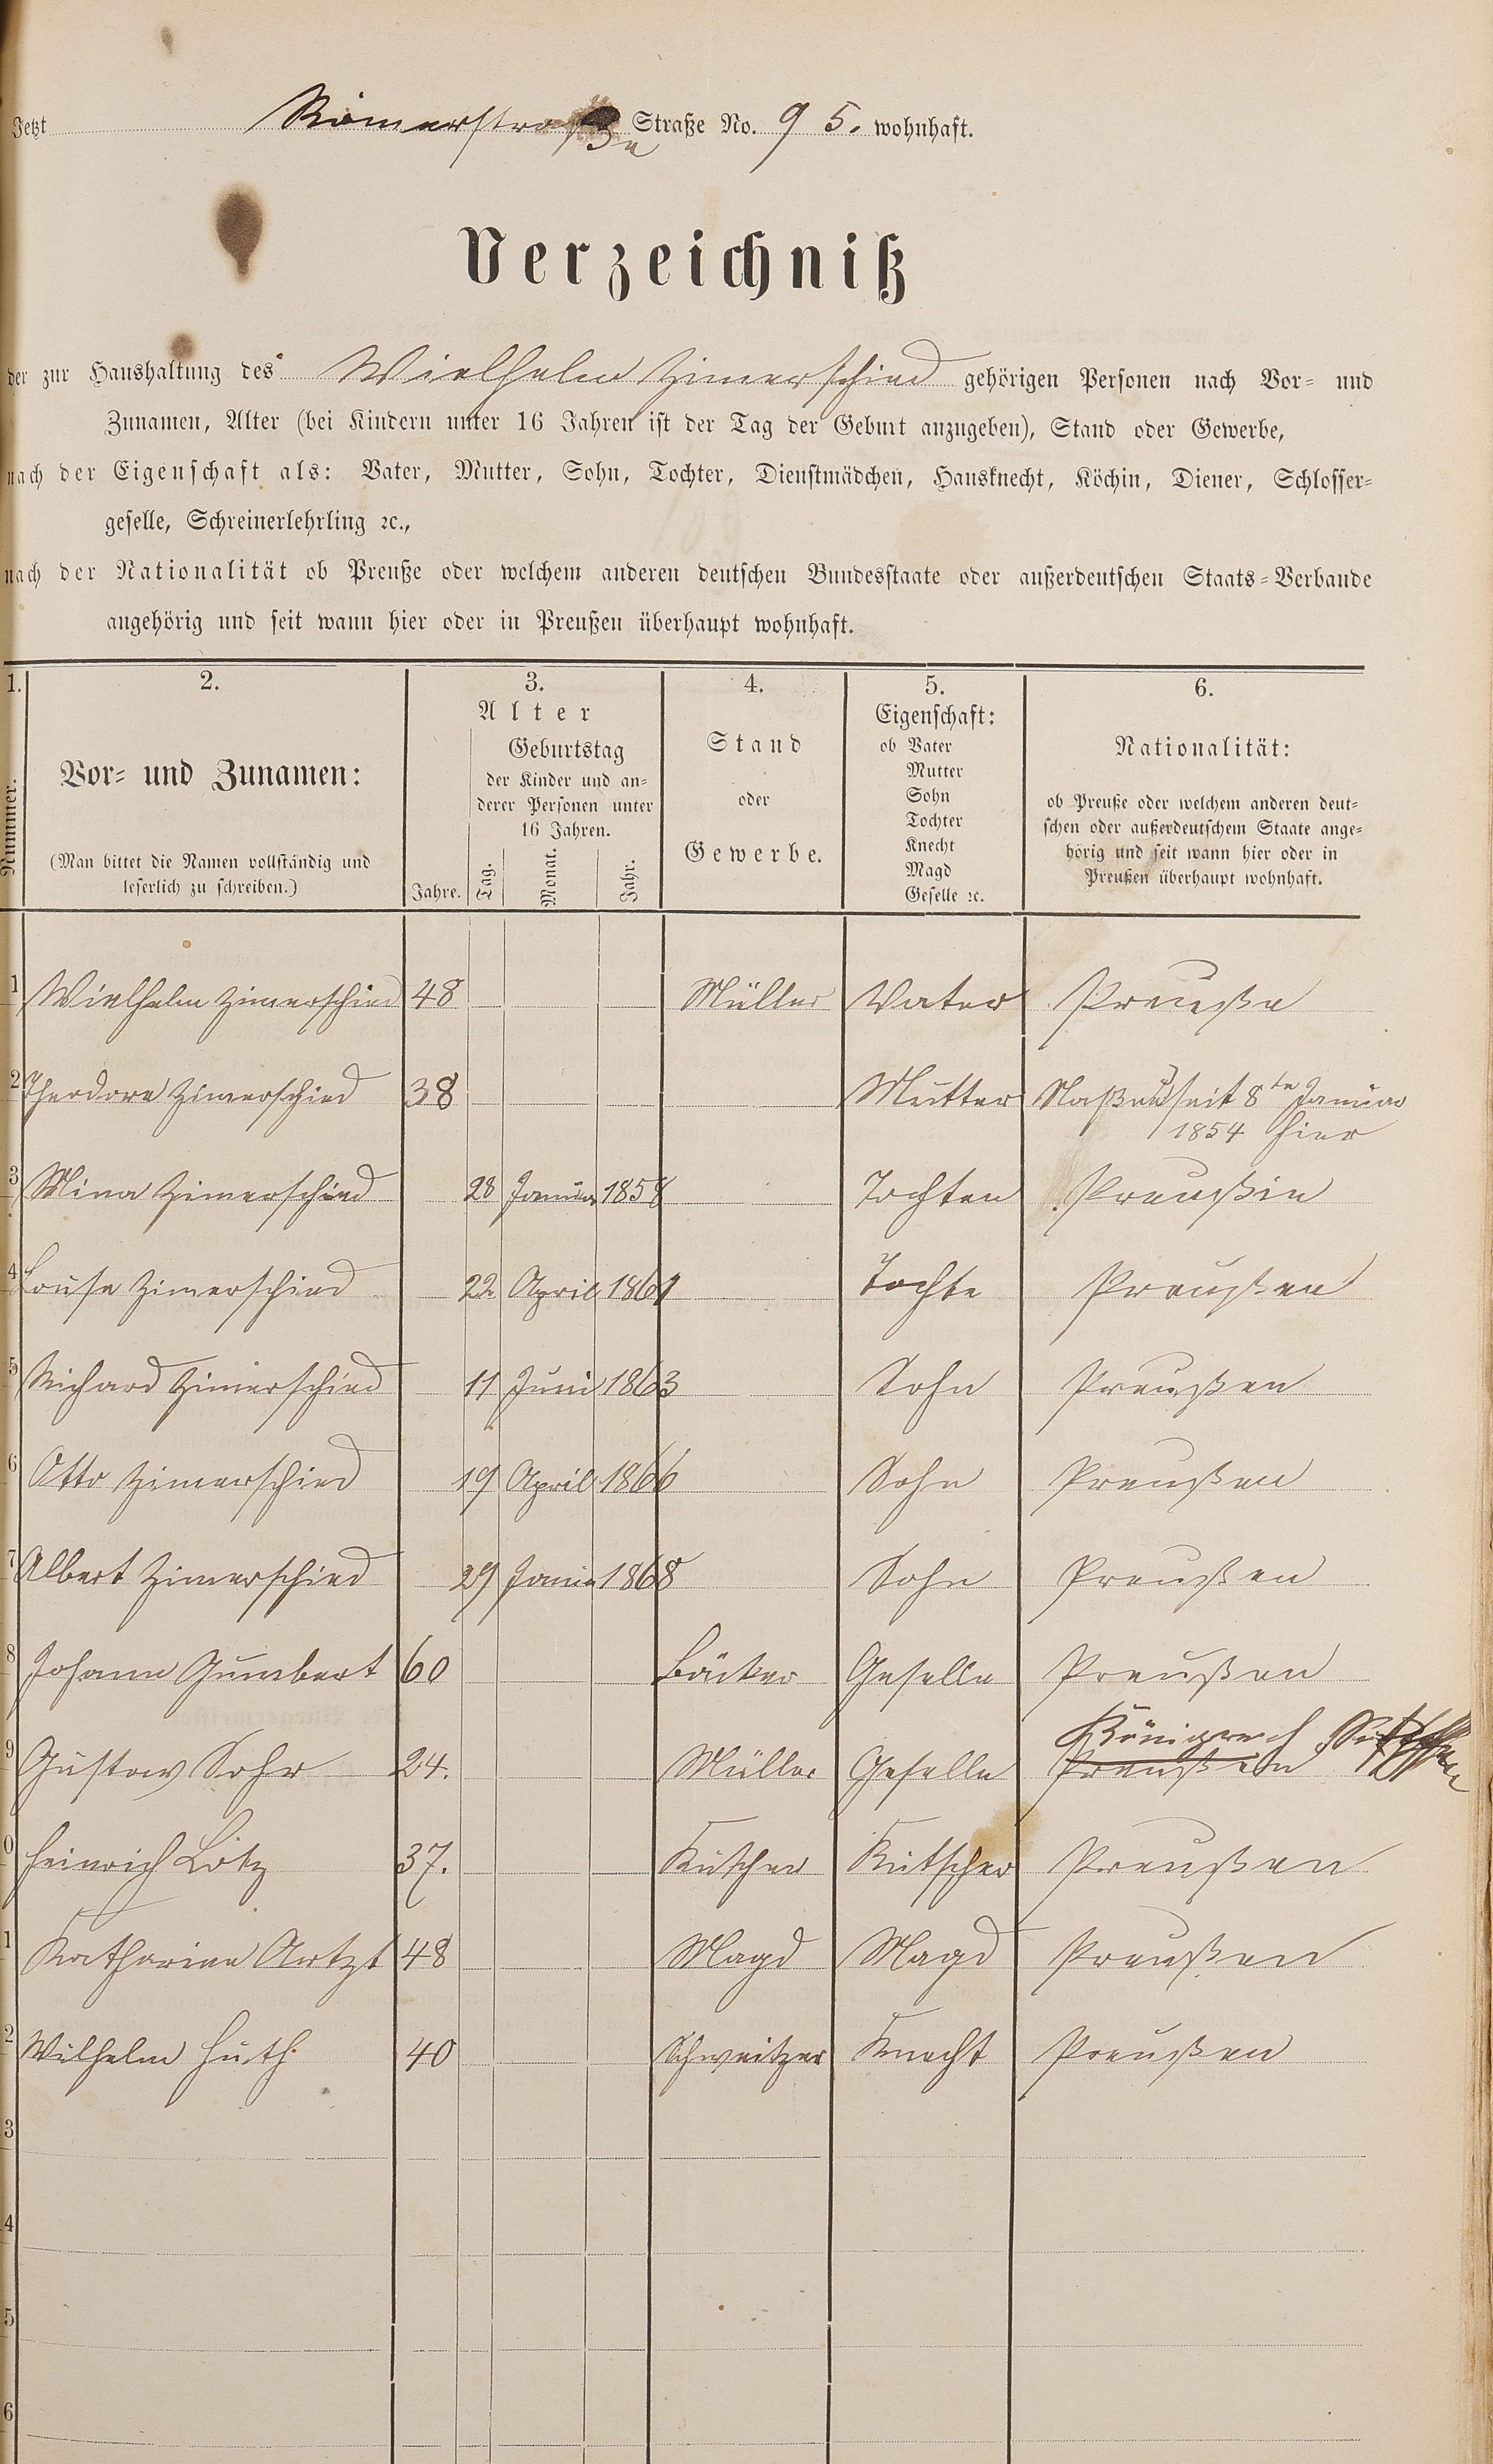 Jetzt Römerstraße Straße No. 95. wohnhaft.
Verzeichniß
der zur Haushaltung des Wielhelm Zimerschied gehörigen Personen nach Vor- und
Zunamen, Alter (bei Kindern unter 16 Jahren ist der Tag der Geburt anzugeben), Stand oder Gewerbe,
nach der Eigenschaft als: Vater, Mutter, Sohn, Tochter, Dienstmädchen, Hausknecht, Köchin, Diener, Schlosser-
geselle, Schreinerlehrling ꝛc.,
nach der Nationalität ob Preuße oder welchem anderen deutschen Bundesstaate oder außerdeutschen Staats-Verbande
angehörig und seit wann hier oder in Preußen überhaupt wohnhaft.
1. 2. 3. 4. 5. 6.
Nummer.
Vor- und Zunamen:
(Man bittet die Namen vollständig und
leserlich zu schreiben.)
Alter
Jahre.
Geburtstag
der Kinder und an-
derer Personen unter
16 Jahren.
Tag. Monat. Jahr.
Stand
oder
Gewerbe.
Eigenschaft:
ob Vater
Mutter
Sohn
Tochter
Knecht
Magd
Geselle ꝛc.
Nationalität:
ob Preuße oder welchem anderen deut-
schen oder außerdeutschem Staate ange-
hörig und seit wann hier oder in
Preußen überhaupt wohnhaft.
1 Wielhelm Zimerschied 48 Müller Vater Preuße
2 Theodore Zimerschied 38 Mutter seit 8te Januar
1854 hier
3 Mina Zimerschied 28 Januar 1858 Tochter Preußin
4 Louise Zimerschied 22 April 1861 Tochte Preußen
5 Richard Zimerschied 11 Juni 1863 Sohn Preußen
6 Otto Zimerschied 19 April 1866 Sohn Preußen
7 Albert Zimerschied 29 1868 Sohn Preußen
8 Johann Gumbert 60 Bäcker Geselle Preußen
Königreich
9 Gustav Sohr 24. Müller Geselle Preußen
0 Heinrich Lotz 37. Kutscher Preußen
1 Katharina Artzt 48 Magd Magd Preußen
2 Wilhelm Huth 40 Schweitzer Knecht Preußen
3
4
5
6